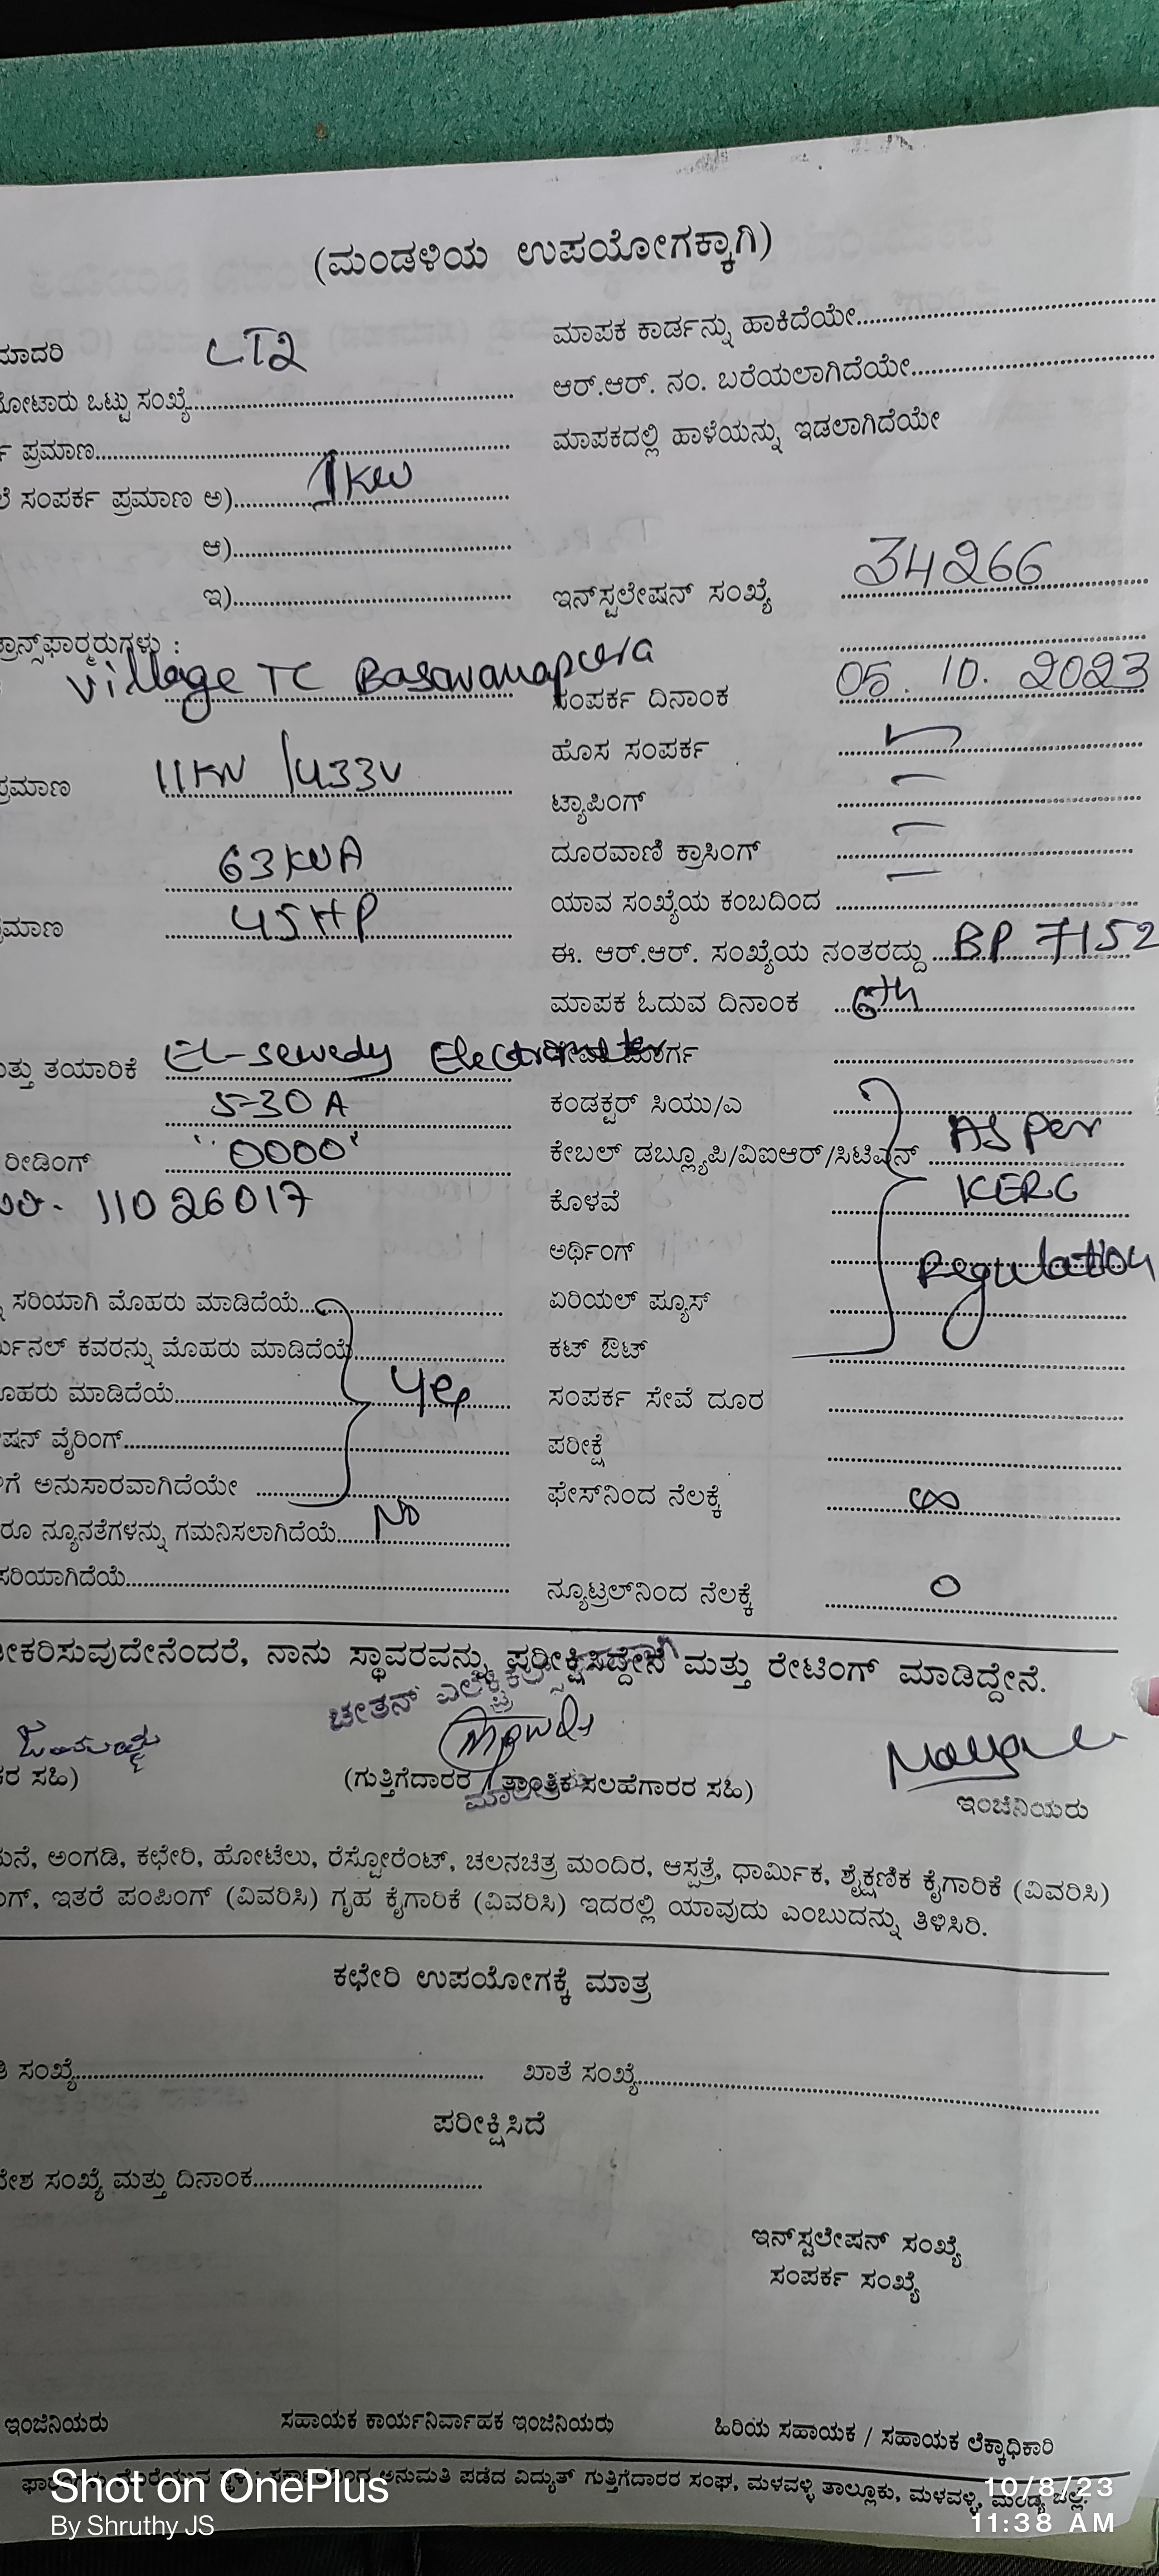 (ಮಂಡಳಿಯ ಉಪಯೋಗಕ್ಕಾಗಿ)
ಮಾದರಿ LT2
ಮೋಟಾರು ಒಟ್ಟು ಸಂಖ್ಯೆ
ಪ್ರಮಾಣ
ಸಂಪರ್ಕ ಪ್ರಮಾಣ ಅ) 1KW
ಆ)
ಇ)
ಟ್ರಾನ್ಸ್‌ಫಾರ್ಮರುಗಳು :
Village TC Basavanapura
ಪ್ರಮಾಣ 11KV/433V
63KVA
ಪ್ರಮಾಣ 45HP
ಮತ್ತು ತಯಾರಿಕೆ EL-sewedy Electrometer
5-30A
ರೀಡಿಂಗ್ "0000"
11026017
ಸರಿಯಾಗಿ ಮೊಹರು ಮಾಡಿದೆಯೆ
ಕವರನ್ನು ಮೊಹರು ಮಾಡಿದೆಯೆ
ಮೊಹರು ಮಾಡಿದೆಯೆ Yes
ವೈರಿಂಗ್
ಅನುಸಾರವಾಗಿದೆಯೇ
ನ್ಯೂನತೆಗಳನ್ನು ಗಮನಿಸಲಾಗಿದೆಯೆ No
ಸರಿಯಾಗಿದೆಯೆ
ಮಾಪಕ ಕಾರ್ಡನ್ನು ಹಾಕಿದೆಯೇ
ಆರ್.ಆರ್. ನಂ. ಬರೆಯಲಾಗಿದೆಯೇ
ಮಾಪಕದಲ್ಲಿ ಹಾಳೆಯನ್ನು ಇಡಲಾಗಿದೆಯೇ
ಇನ್‌ಸ್ಟಲೇಷನ್ ಸಂಖ್ಯೆ 34266
ಸಂಪರ್ಕ ದಿನಾಂಕ 05.10.2023
ಹೊಸ ಸಂಪರ್ಕ
ಟ್ಯಾಪಿಂಗ್
ದೂರವಾಣಿ ಕ್ರಾಸಿಂಗ್
ಯಾವ ಸಂಖ್ಯೆಯ ಕಂಬದಿಂದ
ಈ. ಆರ್.ಆರ್. ಸಂಖ್ಯೆಯ ನಂತರದ್ದು BP 7152
ಮಾಪಕ ಓದುವ ದಿನಾಂಕ 6th
ಕಂಡಕ್ಟರ್ ಸಿಯು/ಎ
ಕೇಬಲ್ ಡಬ್ಲ್ಯೂಪಿ/ವಿಐಆರ್/ಸಿಟಿಎಸ್ As per
ಕೊಳವೆ KERC
ಅರ್ಥಿಂಗ್ Regulation
ಏರಿಯಲ್ ಫ್ಯೂಸ್
ಕಟ್ ಔಟ್
ಸಂಪರ್ಕ ಸೇವೆ ದೂರ
ಪರೀಕ್ಷೆ
ಫೇಸ್‌ನಿಂದ ನೆಲಕ್ಕೆ ∞
ನ್ಯೂಟ್ರಲ್‌ನಿಂದ ನೆಲಕ್ಕೆ 0
ನಾನು ಸ್ಥಾವರವನ್ನು ಪರೀಕ್ಷಿಸಿದ್ದೇನೆ ಮತ್ತು ರೇಟಿಂಗ್ ಮಾಡಿದ್ದೇನೆ.
ಚೇತನ್ ಎಲೆಕ್ಟ್ರಿಕಲ್ಸ್
ಸಹಿ) (ಗುತ್ತಿಗೆದಾರರ / ತಾಂತ್ರಿಕ ಸಲಹೆಗಾರರ ಸಹಿ) ಇಂಜಿನಿಯರು
ಮನೆ, ಅಂಗಡಿ, ಕಛೇರಿ, ಹೋಟೆಲು, ರೆಸ್ಟೋರೆಂಟ್, ಚಲನಚಿತ್ರ ಮಂದಿರ, ಆಸ್ಪತ್ರೆ, ಧಾರ್ಮಿಕ, ಶೈಕ್ಷಣಿಕ ಕೈಗಾರಿಕೆ (ವಿವರಿಸಿ)
ಇತರೆ ಪಂಪಿಂಗ್ (ವಿವರಿಸಿ) ಗೃಹ ಕೈಗಾರಿಕೆ (ವಿವರಿಸಿ) ಇದರಲ್ಲಿ ಯಾವುದು ಎಂಬುದನ್ನು ತಿಳಿಸಿರಿ.
ಕಛೇರಿ ಉಪಯೋಗಕ್ಕೆ ಮಾತ್ರ
ಸಂಖ್ಯೆ ಖಾತೆ ಸಂಖ್ಯೆ
ಪರೀಕ್ಷಿಸಿದೆ
ಸಂಖ್ಯೆ ಮತ್ತು ದಿನಾಂಕ
ಇನ್‌ಸ್ಟಲೇಷನ್ ಸಂಖ್ಯೆ
ಸಂಪರ್ಕ ಸಂಖ್ಯೆ
ಇಂಜಿನಿಯರು ಸಹಾಯಕ ಕಾರ್ಯನಿರ್ವಾಹಕ ಇಂಜಿನಿಯರು ಹಿರಿಯ ಸಹಾಯಕ / ಸಹಾಯಕ ಲೆಕ್ಕಾಧಿಕಾರಿ
ಅನುಮತಿ ಪಡೆದ ವಿದ್ಯುತ್ ಗುತ್ತಿಗೆದಾರರ ಸಂಘ, ಮಳವಳ್ಳಿ ತಾಲ್ಲೂಕು, ಮಳವಳ್ಳಿ, ಮಂಡ್ಯ ಜಿಲ್ಲೆ.
Shot on OnePlus
By Shruthy JS
10/8/23
11:38 AM